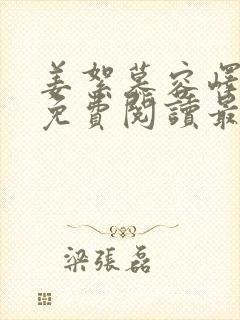 姜絮慕容
免費閱讀最
梁張磊